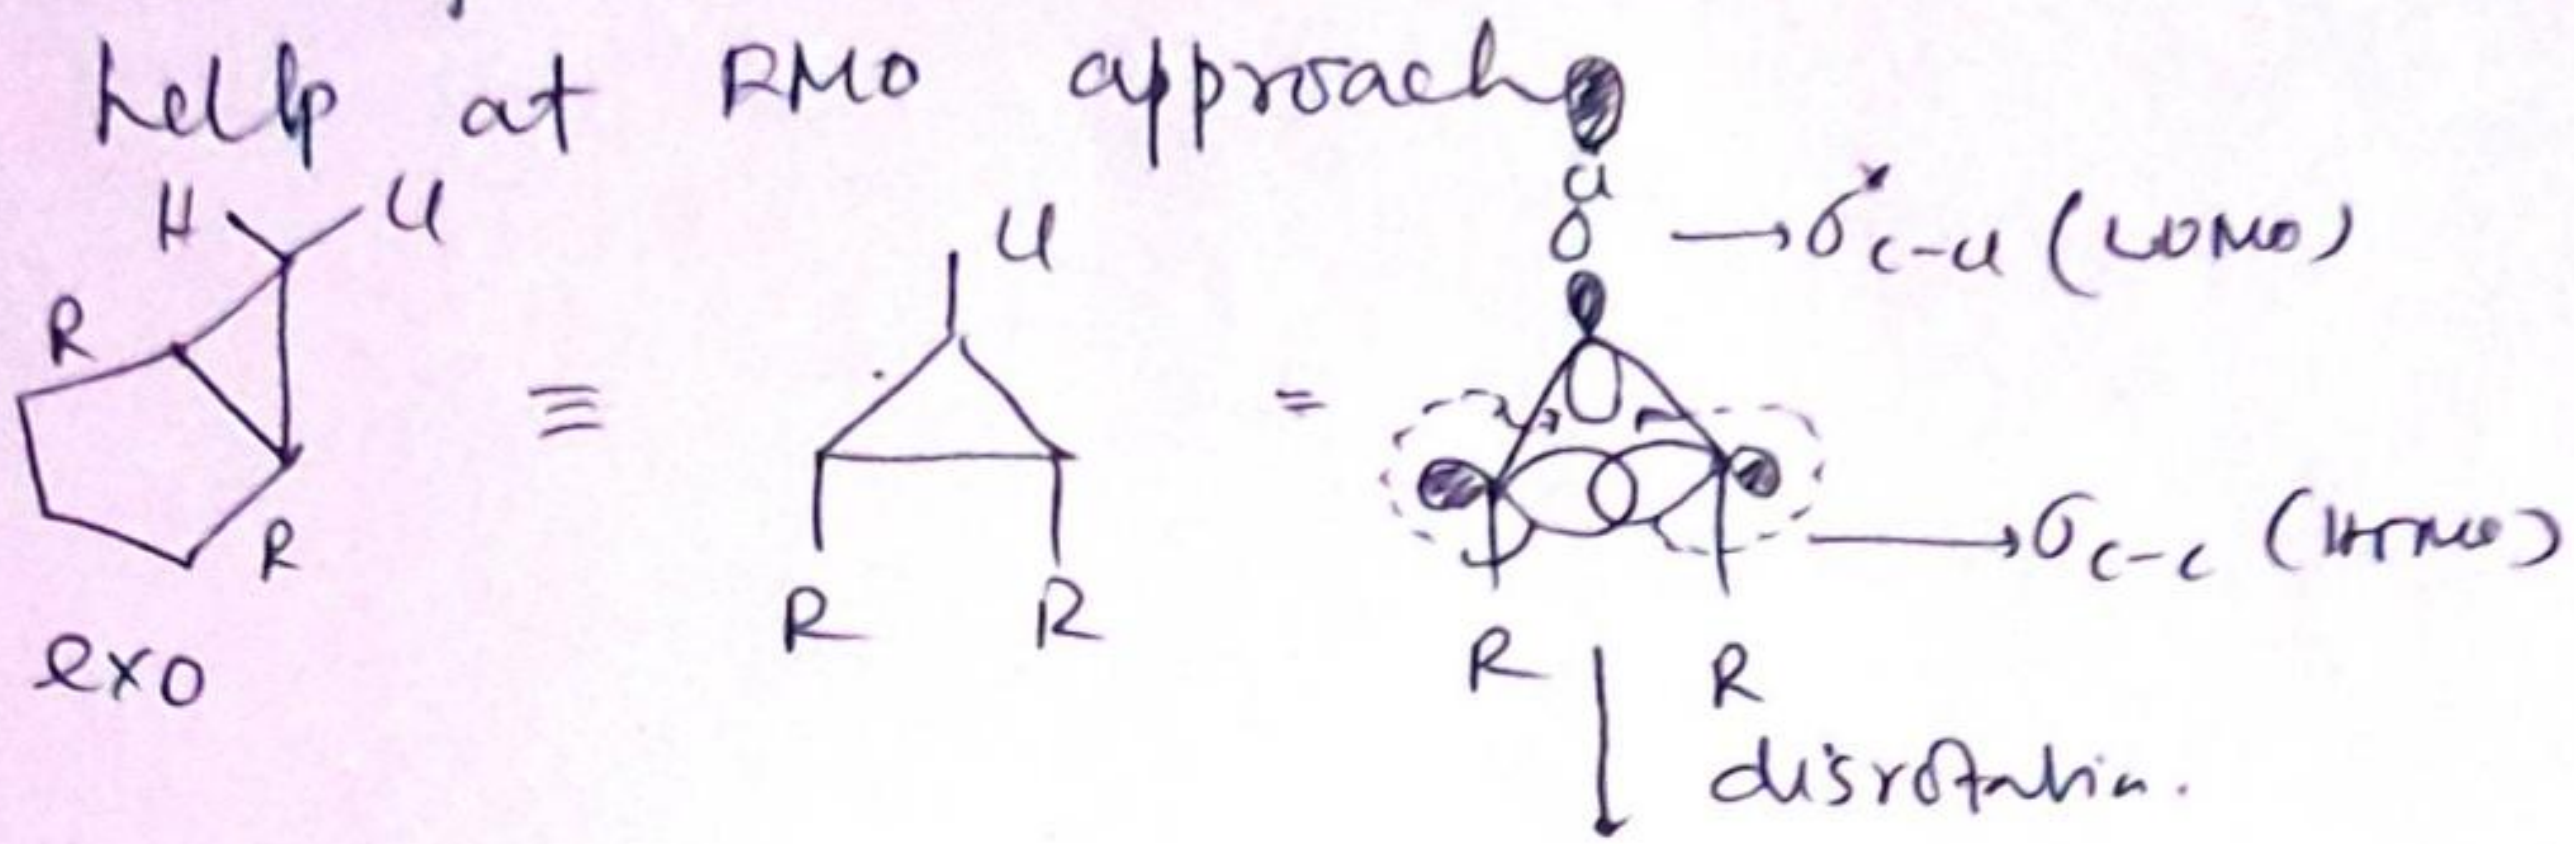 help at FMO approach
H Cl
R
R
exo
≡
Cl
R R
=
Cl
→ σ*C-Cl (LUMO)
→ σC-C (HOMO)
R R
disrotation.